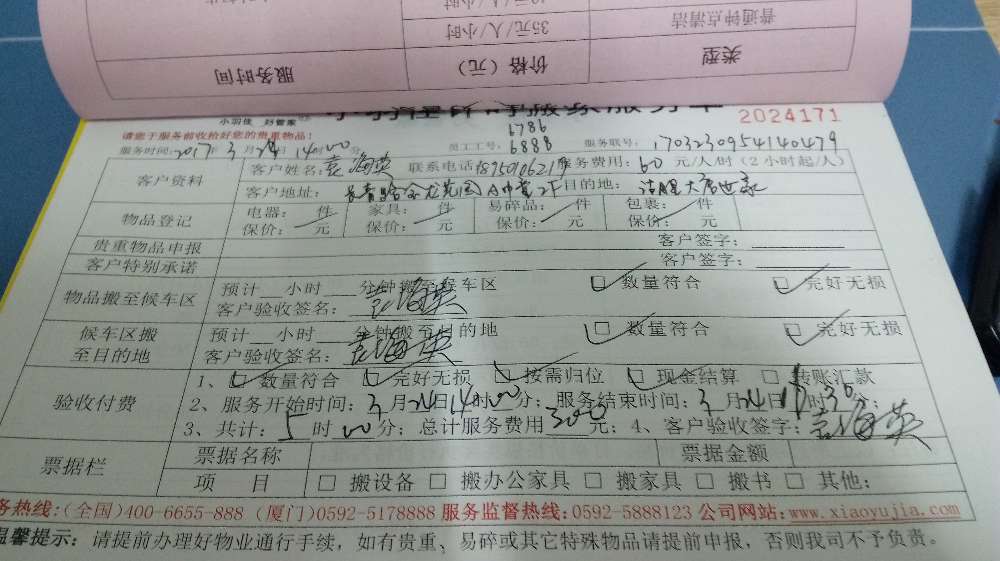 普通钟点清洁 35元/人/小时
类型 价格（元） 服务时间
小羽佳 好管家
2024171
请您于服务前收拾好您的贵重物品！
6786
服务时间：2017年3月24日14时00分 员工工号：6888 服务联号：1703230954140479
客户资料 客户姓名：袁海英 联系电话 服务费用：60元/人/时（2小时起/人）
客户地址： 目的地：
物品登记 电器：件 家具：件 易碎品：件 包裹：件
保价：元 保价：元 保价：元 保价：元
贵重物品申报 客户签字：
客户特别承诺 客户签字：
物品搬至候车区 预计__小时___分钟搬至候车区 数量符合 完好无损
客户验收签名：袁海英
候车区搬至目的地 预计__小时___分钟搬至目的地 数量符合 完好无损
客户验收签名：袁海英
验收付费 1、数量符合 完好无损 按需归位 现金结算 转账汇款
2、服务开始时间：3月24日14时00分；服务结束时间：3月24日 时30分；
3、共计：5时00分；总计服务费用300元；4、客户验收签字：袁海英
票据栏 票据名称 票据金额
项 目 搬设备 搬办公家具 搬家具 搬书 其他：
务热线:(全国)400-6655-888 (厦门)0592-5178888 服务监督热线:0592-5888123 公司网站:www.xiaoyujia.com
温馨提示：请提前办理好物业通行手续，如有贵重、易碎或其它特殊物品请提前申报，否则我司不予负责。